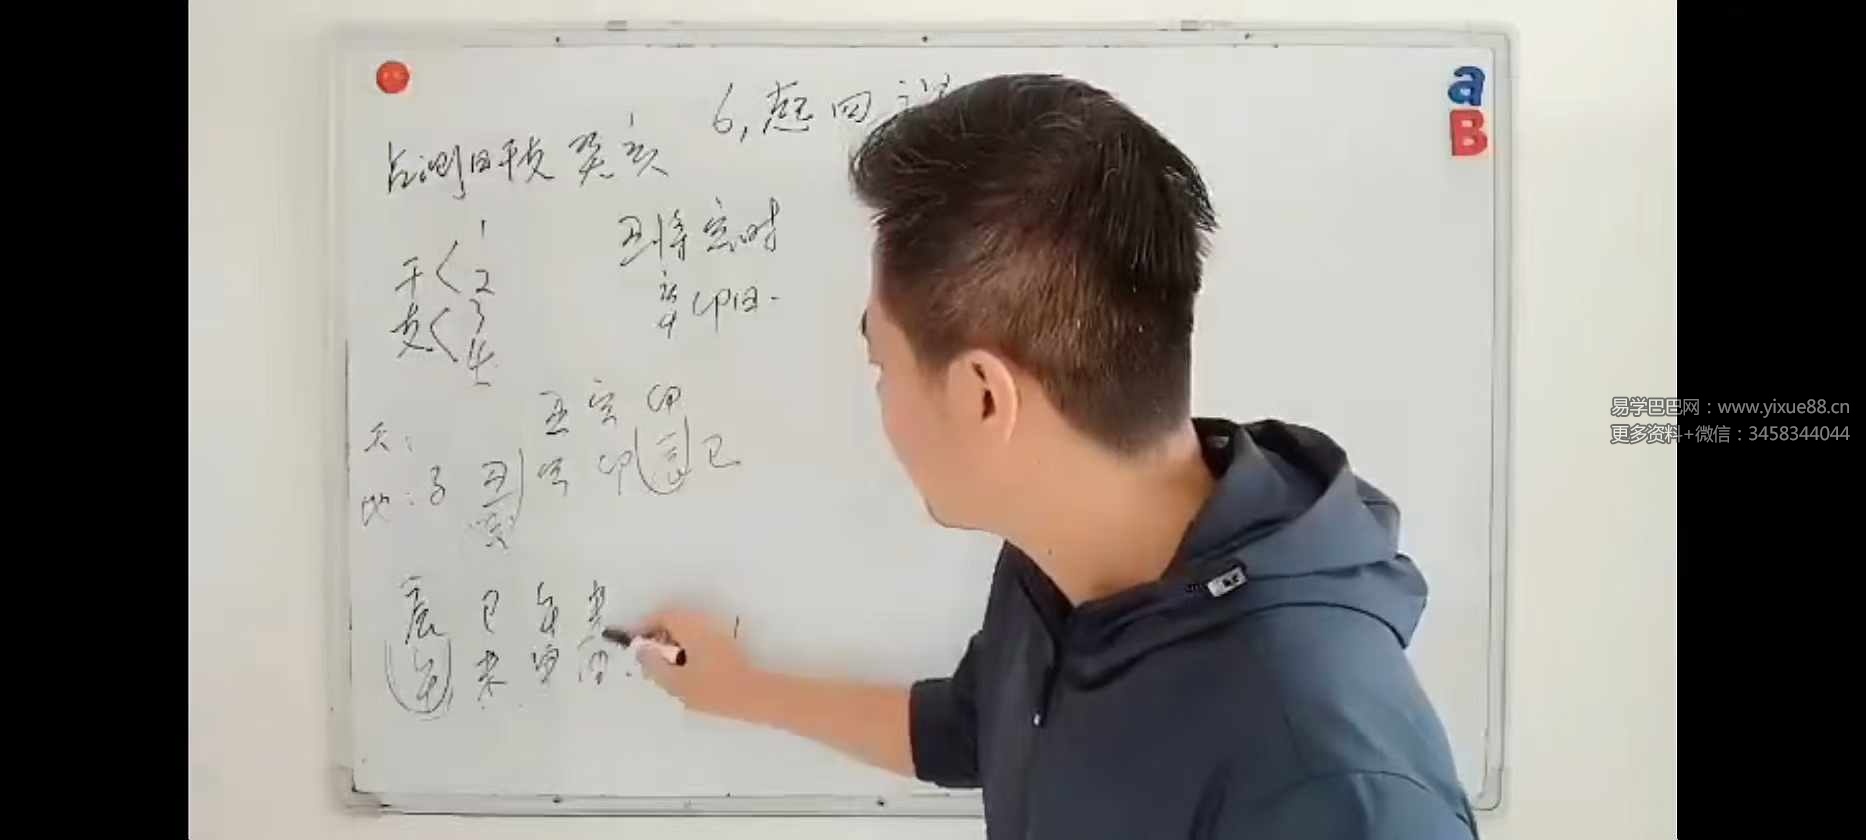 6,起四课
占测日干支 癸亥
1
干 2
支 3
4
丑将寅时
辛卯日.
丑 寅 卯
天:
地:子 丑 寅 卯 辰 巳
寅
辰 巳 午 未
午 未 申 酉
a
B
易学巴巴网:www.yixue88.cn
更多资料+微信:3458344044